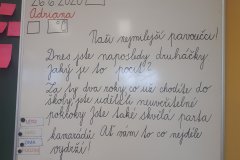 26.6.2020
Adriana
Naši nejmilejší pavoučci!
Dnes jste naposledy druháčky.
Jaký je to pocit?
Za ty dva roky co chodíte do
školy jste udělali neuvěřitelné
pokroky. Jste také skvělá parta
kamarádů. Ať vám to co nejdéle
vydrží!